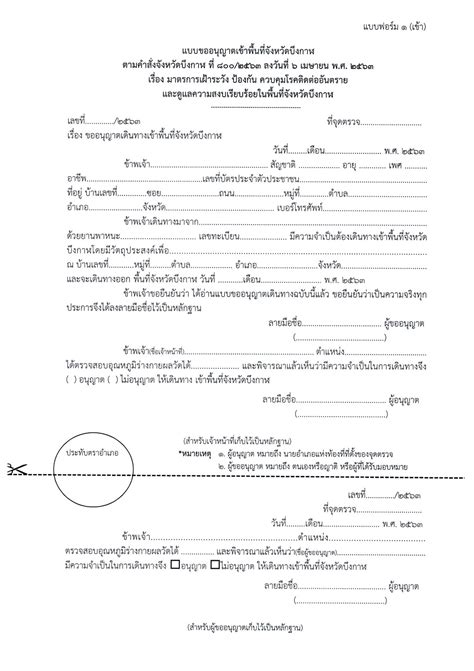 แบบฟอร์ม ๑ (เข้า)
แบบขออนุญาตเข้าพื้นที่จังหวัดบึงกาฬ
ตามคำสั่งจังหวัดบึงกาฬ ที่ ๘๐๐/๒๕๖๓ ลงวันที่ ๖ เมษายน พ.ศ. ๒๕๖๓
เรื่อง มาตรการเฝ้าระวัง ป้องกัน ควบคุมโรคติดต่ออันตราย
และดูแลความสงบเรียบร้อยในพื้นที่จังหวัดบึงกาฬ
เลขที่............../๒๕๖๓ ที่จุดตรวจ............................
เรื่อง ขออนุญาตเดินทางเข้าพื้นที่จังหวัดบึงกาฬ
วันที่.........เดือน......................... พ.ศ. ๒๕๖๓
ข้าพเจ้า.................................................... สัญชาติ .................. อายุ ......... เพศ ...........
อาชีพ..................................................เลขที่บัตรประจำตัวประชาชน........................................................
ที่อยู่ บ้านเลขที่.............ซอย..........................ถนน......................หมู่ที่.........ตำบล....................................
อำเภอ.........................จังหวัด.................................................. เบอร์โทรศัพท์..........................................
ข้าพเจ้าเดินทางมาจาก.............................................................................................
ด้วยยานพาหนะ................................... เลขทะเบียน...................... มีความจำเป็นต้องเดินทางเข้าพื้นที่จังหวัด
บึงกาฬโดยมีวัตถุประสงค์เพื่อ..............................................................................................................
ณ บ้านเลขที่............หมู่ที่.........ตำบล.................... อำเภอ..........................จังหวัด...................................
และจะเดินทางออก พื้นที่จังหวัดบึงกาฬ วันที่ ............เดือน............................ พ.ศ. ๒๕๖๓
ข้าพเจ้าขอยืนยันว่า ได้อ่านแบบขออนุญาตเดินทางฉบับนี้แล้ว ขอยืนยันว่าเป็นความจริงทุก
ประการจึงได้ลงลายมือชื่อไว้เป็นหลักฐาน
ลายมือชื่อ................................... ผู้ขออนุญาต
(........................................)
ข้าพเจ้า(ชื่อเจ้าหน้าที่)......................................................... ตำแหน่ง.....................................
ได้ตรวจสอบอุณหภูมิร่างกายผลวัดได้...................... และพิจารณาแล้วเห็นว่ามีความจำเป็นในการเดินทางจึง
( ) อนุญาต ( ) ไม่อนุญาต ให้เดินทาง เข้าพื้นที่จังหวัดบึงกาฬ
ลายมือชื่อ....................................... ผู้อนุญาต
(........................................)
(สำหรับเจ้าหน้าที่เก็บไว้เป็นหลักฐาน)
ประทับตราอำเภอ
*หมายเหตุ ๑. ผู้อนุญาต หมายถึง นายอำเภอแห่งท้องที่ที่ตั้งของจุดตรวจ
๒. ผู้ขออนุญาต หมายถึง ตนเองหรือญาติ หรือผู้ที่ได้รับมอบหมาย
เลขที่............/๒๕๖๓
ที่จุดตรวจ............................
วันที่.........เดือน......................... พ.ศ. ๒๕๖๓
ข้าพเจ้า..................................................................ตำแหน่ง...........................................
ตรวจสอบอุณหภูมิร่างกายผลวัดได้ ............... และพิจารณาแล้วเห็นว่า(ชื่อผู้ขออนุญาต).......................................
มีความจำเป็นในการเดินทางจึง ☐อนุญาต ☐ไม่อนุญาต ให้เดินทางเข้าพื้นที่จังหวัดบึงกาฬ
ลายมือชื่อ....................................... ผู้อนุญาต
(........................................)
(สำหรับผู้ขออนุญาตเก็บไว้เป็นหลักฐาน)